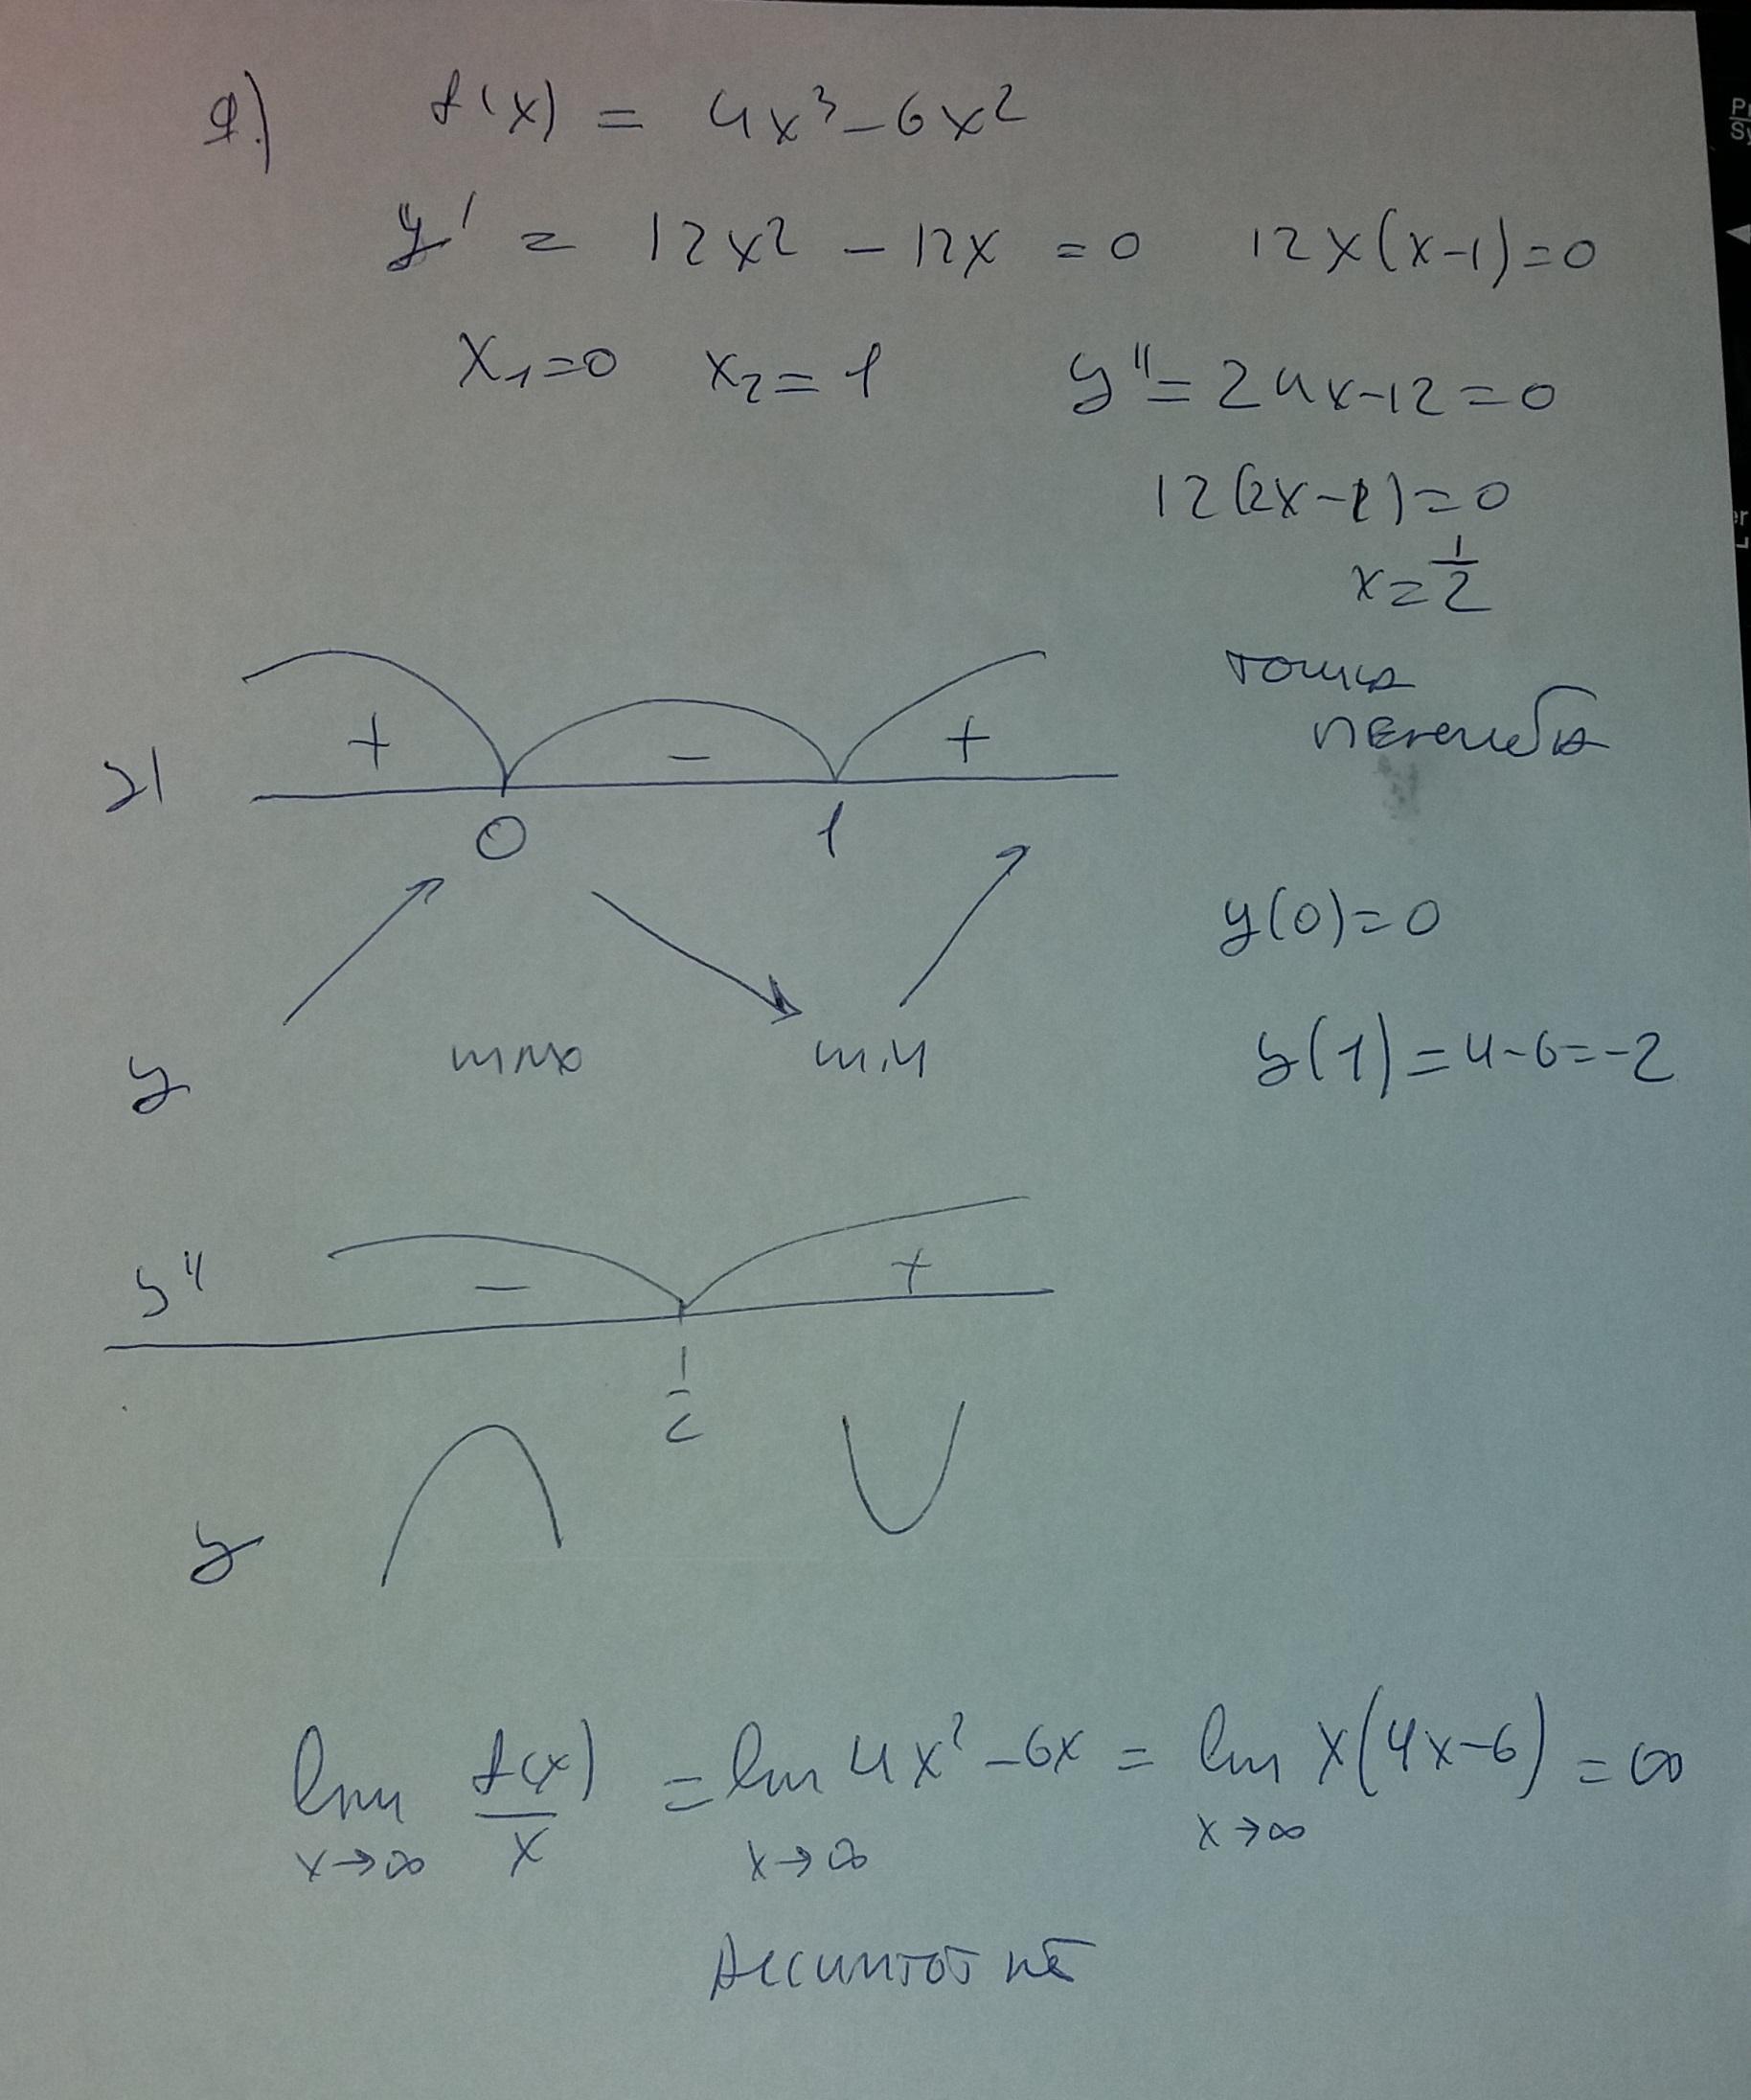 9.) f(x) = 4x³ - 6x²
y' = 12x² - 12x = 0 12x(x-1)=0
x₁=0 x₂=1 y''=24x-12=0
12(2x-1)=0
x=1/2
точка
перегиба
y' + - +
0 1
y(0)=0
y max min y(1)=4-6=-2
y'' - +
1/2
y
lim x→∞ f(x)/x = lim x→∞ 4x²-6x = lim x→∞ x(4x-6) = ∞
Ассимтот нет